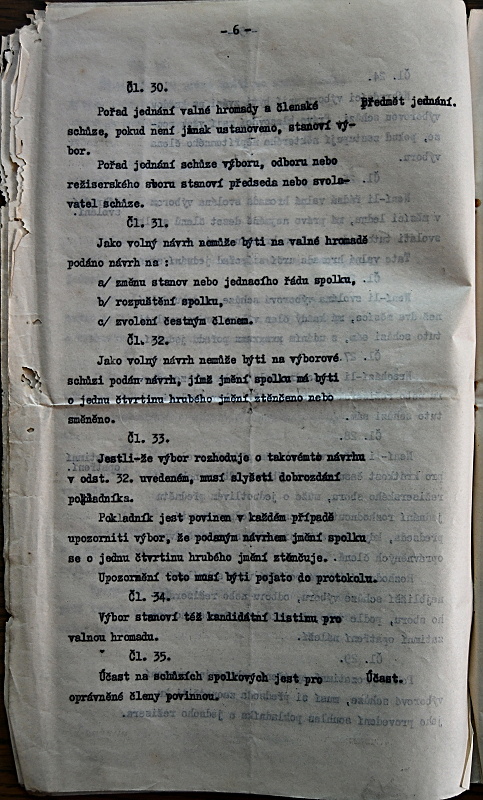 - 6 -
Čl. 30.
Pořad jednání valné hromady a členské předmět jednání.
schůze, pokud není jinak ustanoveno, stanoví vý-
bor.
Pořad jednání schůze výboru, odboru nebo
režiserského sboru stanoví předseda nebo svola-
vatel schůze.
Čl. 31.
Jako volný návrh nemůže býti na valné hromadě
podáno návrh na :
a/ změnu stanov nebo jednacího řádu spolku,
b/ rozpuštění spolku,
c/ zvolení čestným členem.
Čl. 32.
Jako volný návrh nemůže býti na výborové
schůzi podán návrh, jímž jmění spolku má býti
o jednu čtvrtinu hrubého jmění ztěnčeno nebo
směněno.
Čl. 33.
Jestli-že výbor rozhoduje o takovémto návrhu
v odst. 32. uvedeném, musí slyšeti dobrozdání
pokladníka.
Pokladník jest povinen v každém případě
upozorniti výbor, že podaným návrhem jmění spolku
se o jednu čtvrtinu hrubého jmění ztěnčuje.
Upozornění toto musí býti pojato do protokolu.
Čl. 34.
Výbor stanoví též kandidátní listinu pro
valnou hromadu.
Čl. 35.
Účast na schůzích spolkových jest pro Účast.
oprávněné členy povinnou.